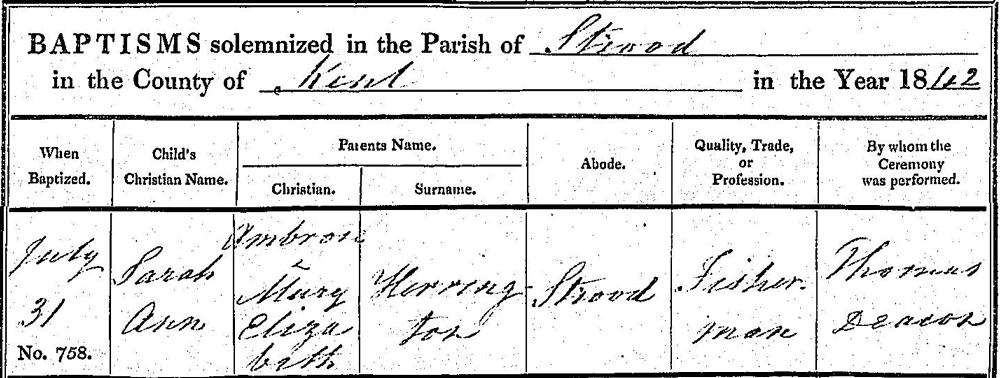 BAPTISMS solemnized in the Parish of Strood
in the County of Kent in the Year 1842
When Baptized.
Child's Christian Name.
Parents Name.
Christian.
Surname.
Abode.
Quality, Trade, or Profession.
By whom the Ceremony was performed.
July
31
No. 758.
Sarah
Ann
Ambrose
&
Mary
Eliza
beth
Herring-
ton
Strood
Fisher-
man
Thomas
Deacon